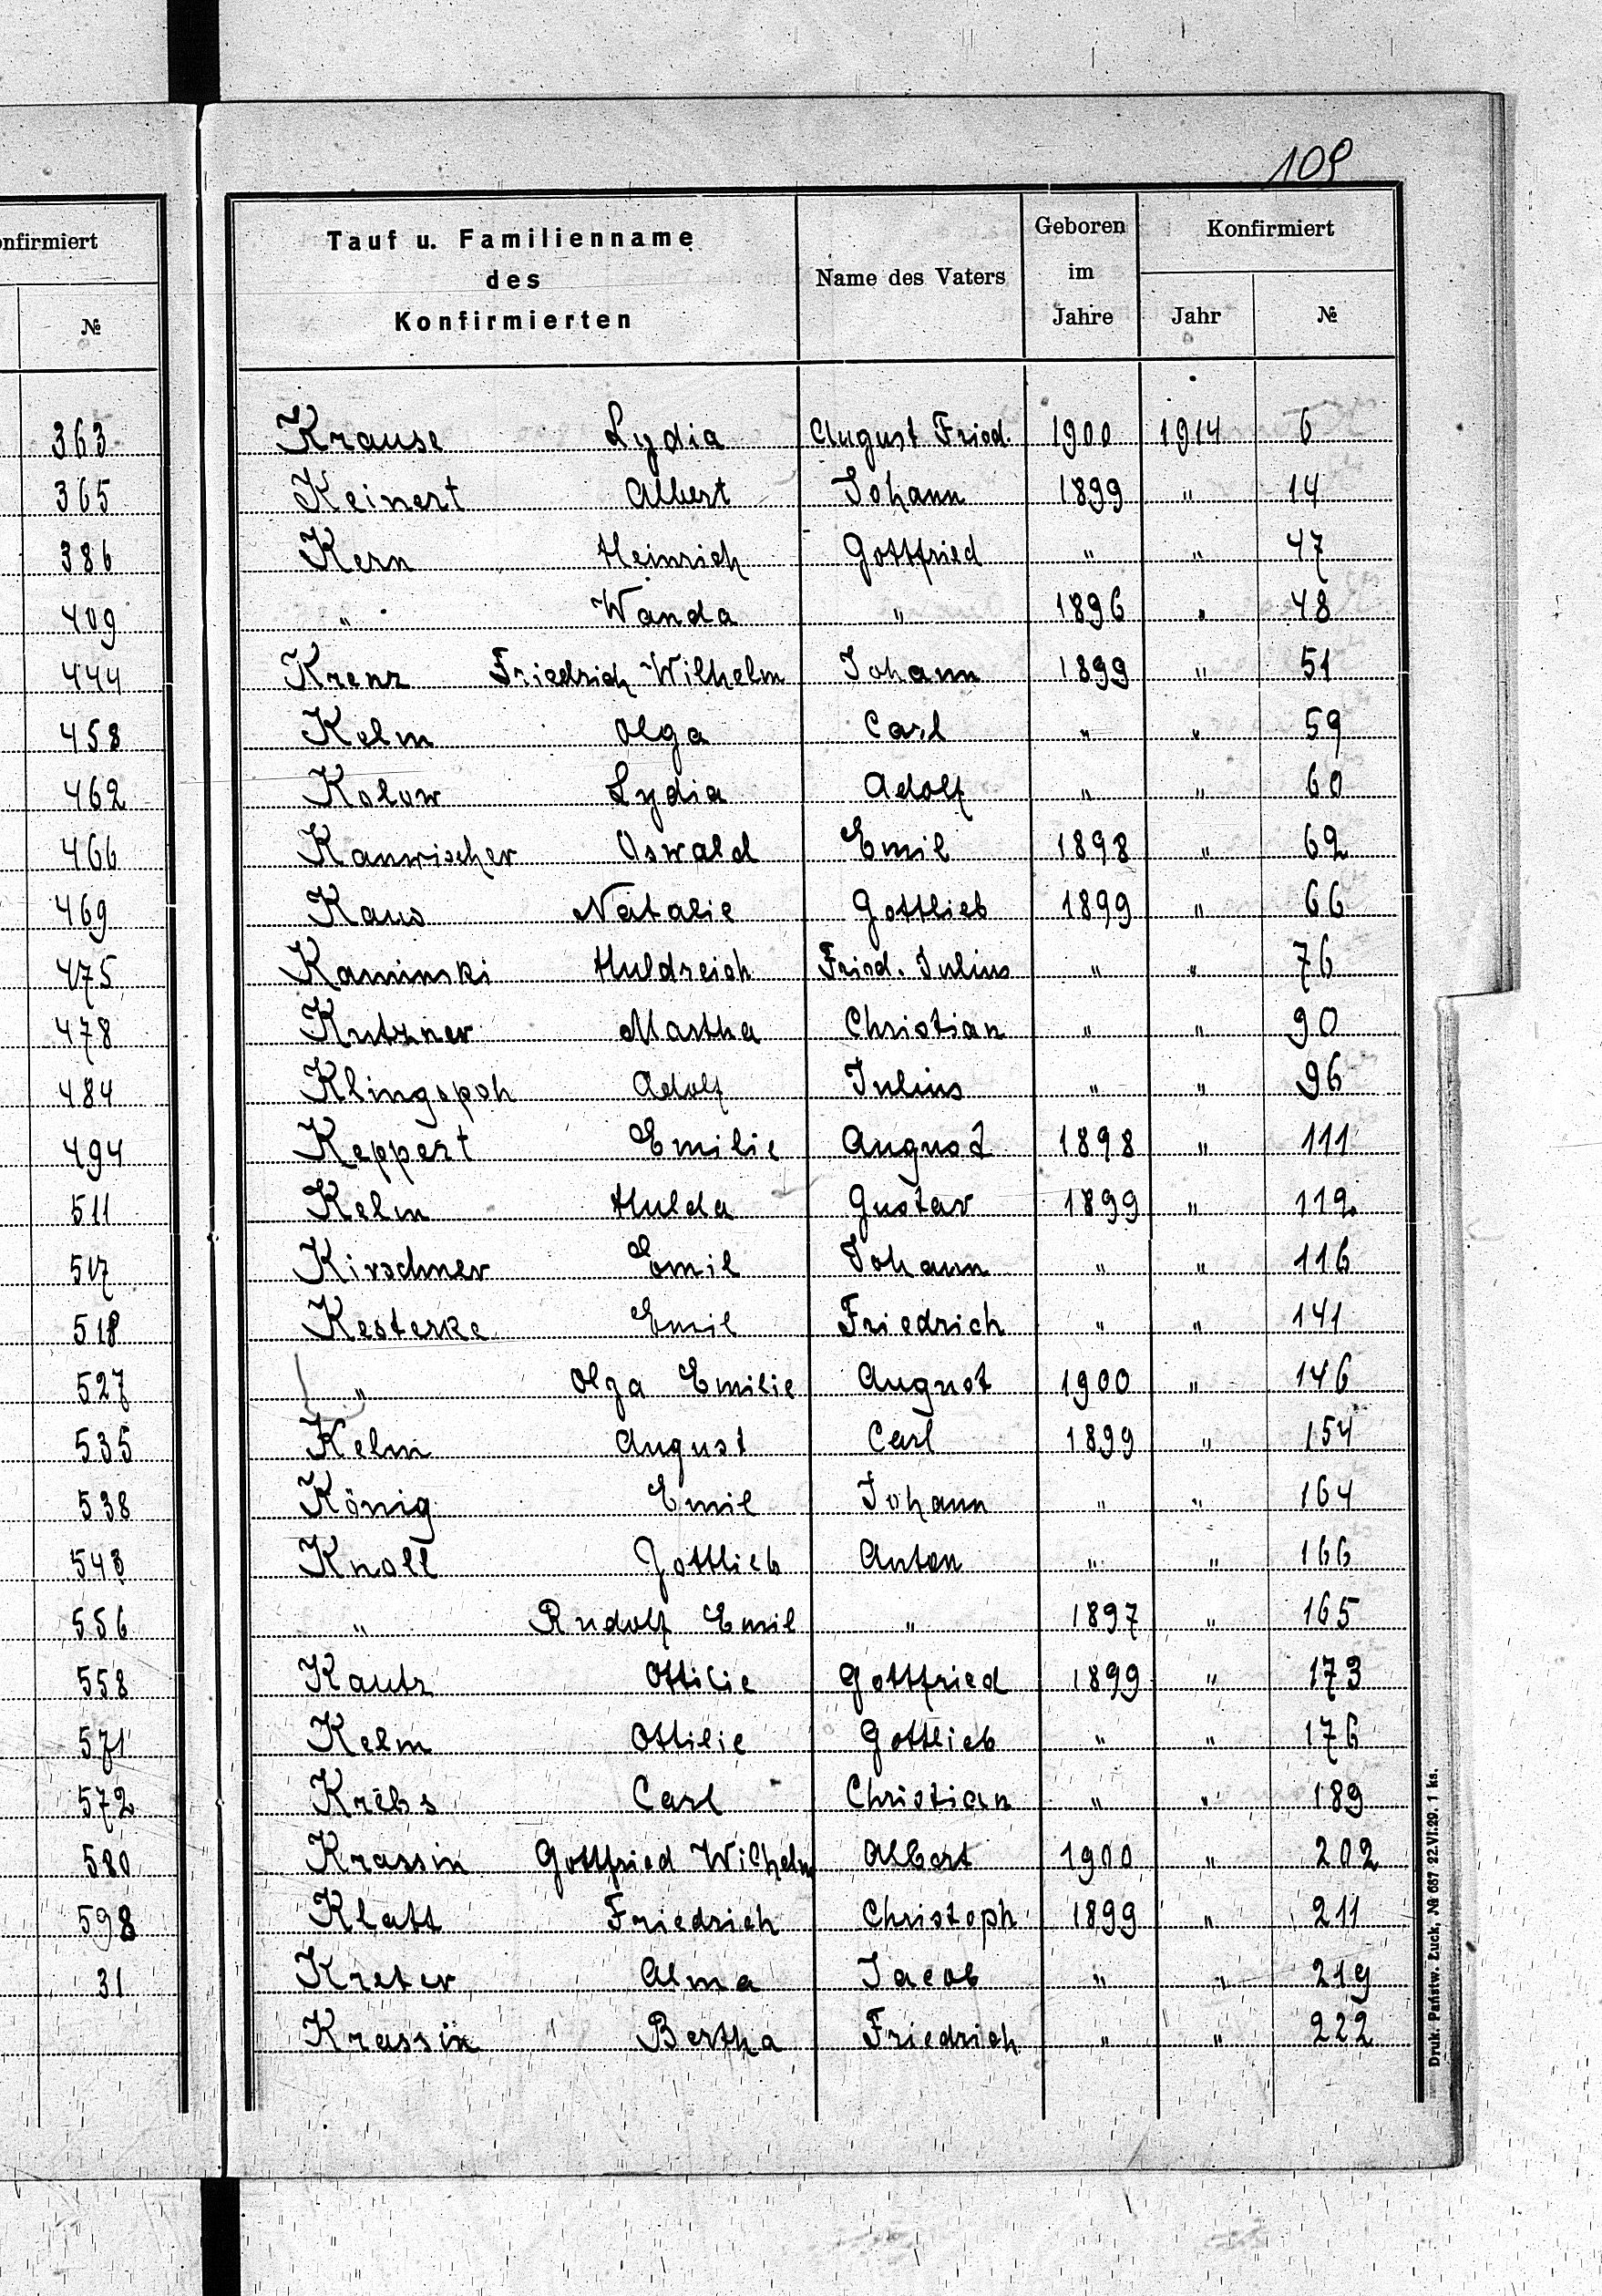 109
onfirmiert
№
363
365
386
409
444
458
462
466
469
475
478
484
494
511
517
518
527
535
538
543
556
558
571
572
580
598
31
Tauf u. Familienname des Konfirmierten | Name des Vaters | Geboren im Jahre | Konfirmiert
Jahr | №
Krause Lydia August Fried. 1900 1914 6
Keinert Albert Johann 1899 " 14
Kern Heinrich Gottfried " " 47
" Wanda " 1896 " 48
Krenz Friedrich Wilhelm Johann 1899 " 51
Kelm Olga Carl " " 59
Kolow Lydia Adolf " " 60
Kanwischer Oswald Emil 1898 " 62
Kaus Natalie Gottlieb 1899 " 66
Kaminski Huldreich Fried. Julius " " 76
Kutzner Martha Christian " " 90
Klingspoh Adolf Julius " " 96
Keppert Emilie August 1898 " 111
Kelm Hulda Gustav 1899 " 112
Kirschner Emil Johann " " 116
Kesterke Emil Friedrich " " 141
" Olga Emilie August 1900 " 146
Kelm August Carl 1899 " 154
König Emil Johann " " 164
Knoll Gottlieb Anton " " 166
" Rudolf Emil " 1897 " 165
Kautz Ottilie Gottfried 1899 " 173
Kelm Ottilie Gottlieb " " 176
Krebs Carl Christian " " 189
Krassin Gottfried Wilhelm Albert 1900 " 202
Klatt Friedrich Christoph 1899 " 211
Kreter Alma Jacob " " 219
Krassin Bertha Friedrich " " 222
Druk. Państw. Łuck, № 687 22.VI.29. 1 ks.